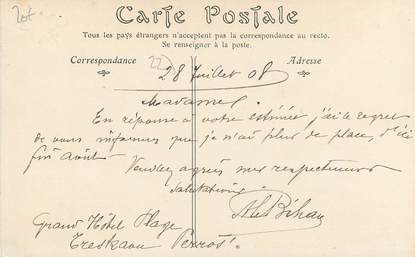 Carte Postale
Tous les pays étrangers n'acceptent pas la correspondance au recto.
Se renseigner à la poste.
Correspondance
Adresse
22
28 Juillet 08
Madame
En réponse à votre estimée j'ai le regret
de vous informer que je n'ai plus de place, d'ici
fin Août
Veuillez agréer mes respectueuses
salutations
A Le Bihan
Grand Hôtel Plage
Treskaou Perros